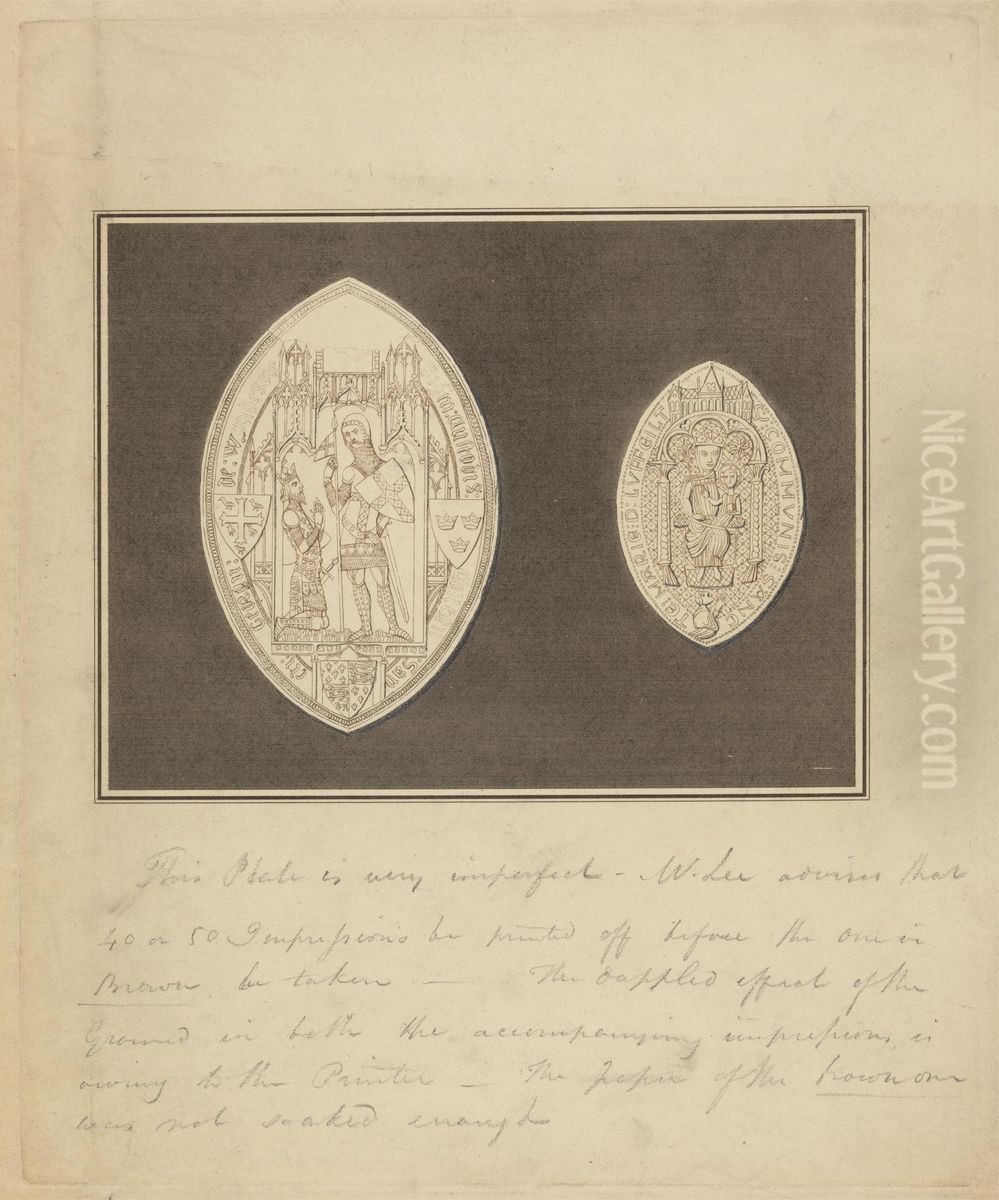 de: w
m: agtoins
S: COMMVNIS: SANC
TE: MARIE: D: LVFFEILT
This Plate is very imperfect - Mr. Lee advises that
40 or 50 Impressions be printed off before the one in
Brown be taken — The dappled effect of the
Ground in both the accompanying impressions, is
owing to the Printer — The paper of the brown one
was not soaked enough
NiceArtGallery.com